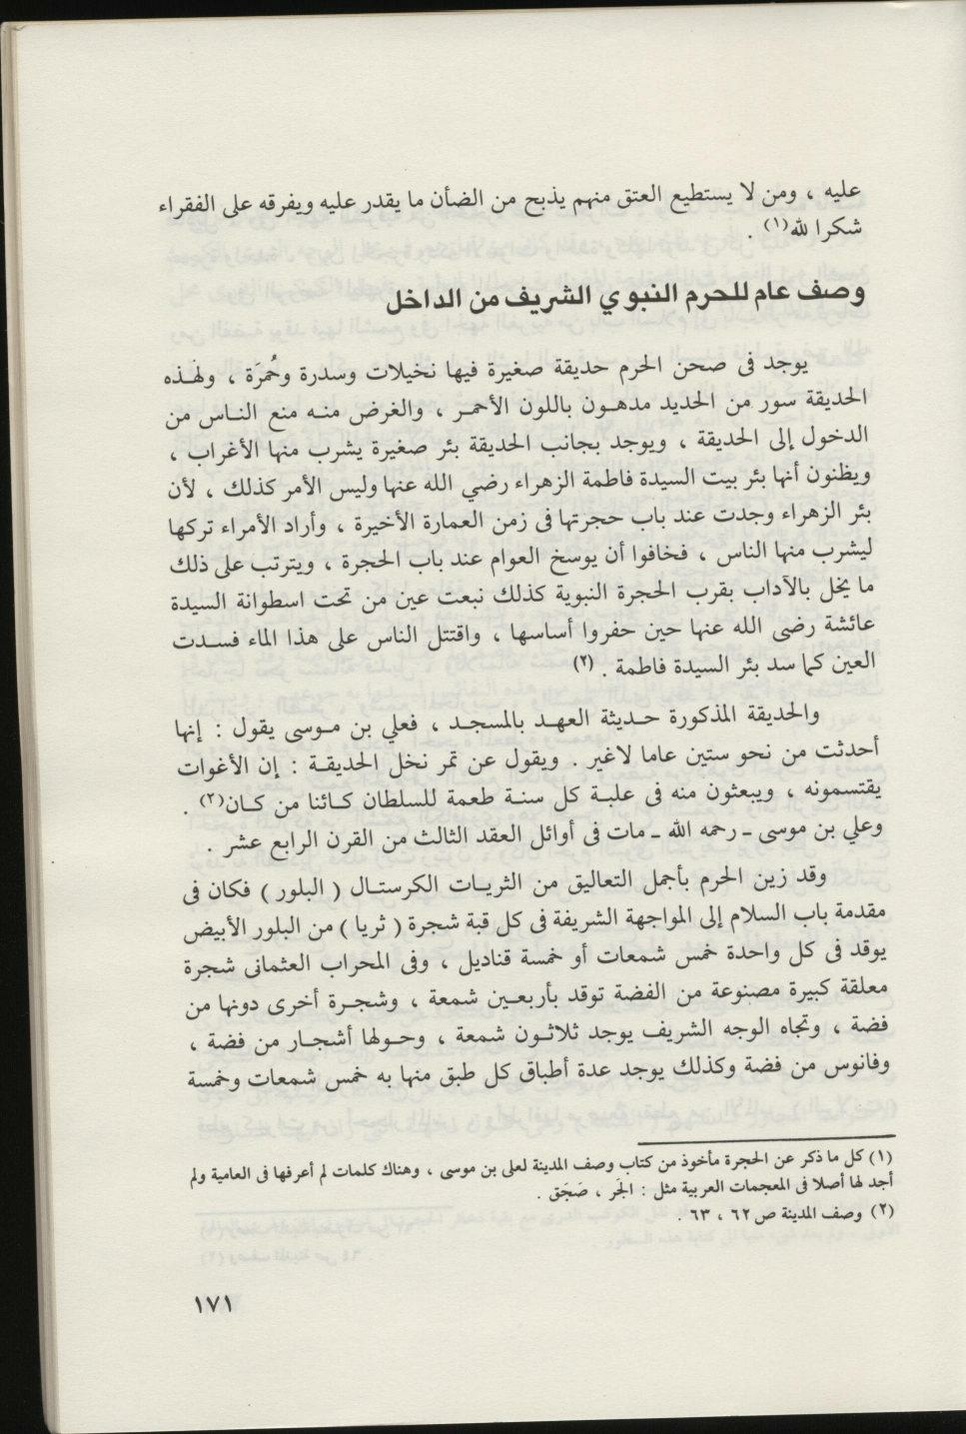 عليه ، ومن لا يستطيع العتق منهم يذبح من الضأن ما يقدر عليه ويفرقه على الفقراء
شكرا لله(١) .
وصف عام للحرم النبوي الشريف من الداخل
يوجد فى صحن الحرم حديقة صغيرة فيها نخيلات وسدرة وحُمرَة ، ولهذه
الحديقة سور من الحديد مدهون باللون الأحمر ، والغرض منه منع الناس من
الدخول إلى الحديقة ، ويوجد بجانب الحديقة بئر صغيرة يشرب منها الأغراب ،
ويظنون أنها بئر بيت السيدة فاطمة الزهراء رضي الله عنها وليس الأمر كذلك ، لأن
بئر الزهراء وجدت عند باب حجرتها فى زمن العمارة الأخيرة ، وأراد الأمراء تركها
ليشرب منها الناس ، فخافوا أن يوسخ العوام عند باب الحجرة ، ويترتب على ذلك
ما يخل بالآداب بقرب الحجرة النبوية كذلك نبعت عين من تحت اسطوانة السيدة
عائشة رضى الله عنها حين حفروا أساسها ، واقتتل الناس على هذا الماء فسدت
العين كما سد بئر السيدة فاطمة . (٢)
والحديقة المذكورة حديثة العهد بالمسجد ، فعلي بن موسى يقول : إنها
أحدثت من نحو ستين عاما لاغير . ويقول عن تمر نخل الحديقة : إن الأغوات
يقتسمونه ، ويبعثون منه فى علبة كل سنة طعمة للسلطان كائنا من كان(٢) .
وعلي بن موسى ـ رحمه الله ـ مات فى أوائل العقد الثالث من القرن الرابع عشر .
وقد زين الحرم بأجمل التعاليق من الثريات الكرستال ( البلور ) فكان فى
مقدمة باب السلام إلى المواجهة الشريفة فى كل قبة شجرة ( ثريا ) من البلور الأبيض
يوقد فى كل واحدة خمس شمعات أو خمسة قناديل ، وفى المحراب العثمانى شجرة
معلقة كبيرة مصنوعة من الفضة توقد بأربعين شمعة ، وشجرة أخرى دونها من
فضة ، وتجاه الوجه الشريف يوجد ثلاثون شمعة ، وحولها أشجار من فضة ،
وفانوس من فضة وكذلك يوجد عدة أطباق كل طبق منها به خمس شمعات وخمسة
(١) كل ما ذكر عن الحجرة مأخوذ من كتاب وصف المدينة لعلى بن موسى ، وهناك كلمات لم أعرفها فى العامية ولم
أجد لها أصلا فى المعجمات العربية مثل : الجَر ، صَجَق .
(٢) وصف المدينة ص ٦٢ ، ٦٣ .
١٧١